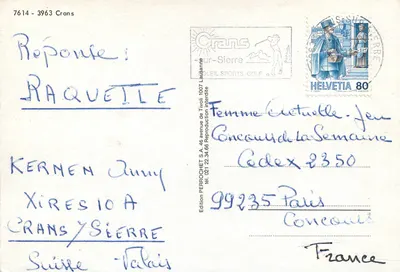 7614 - 3963 Crans
Réponse :
RAQUETTE
KERNEN Anny
XIRES 10 A
CRANS/SIERRE
Suisse - Valais
Edition PERROCHET S.A., 46 avenue de Tivoli, 1007 Lausanne
tél. 021 22.34.66 Reproduction interdite
Crans
-sur-Sierre
GOLF
HELVETIA 80
Femme actuelle - Jeu
Concours de la Semaine
Cedex 2350
99235 Paris
Concours
France